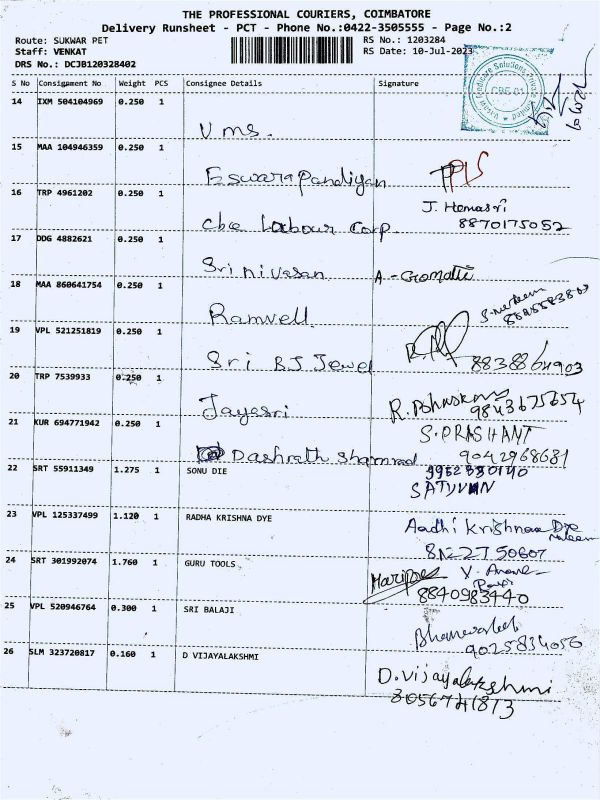 THE PROFESSIONAL COURIERS, COIMBATORE
Delivery Runsheet - PCT - Phone No.:0422-3505555 - Page No.:2
Route: SUKWAR PET RS No.: 1203284
Staff: VENKAT RS Date: 10-Jul-2023
DRS No.: DCJB120328402
S No Consignment No Weight PCS Consignee Details Signature
14 IXM 504104969 0.250 1
Vms.
15 MAA 104946359 0.250 1
Eswarapandiyan
16 TRP 4961202 0.250 1 J. Hemasri
Cbe Labour Corp. 8870175052
17 DDG 4882621 0.250 1
Srinivasan A - Gomathi
18 MAA 860641754 0.250 1
Ramvell
19 VPL 521251819 0.250 1
Sri BJ Jewel 8838864903
20 TRP 7539933 0.250 1
Jayasri R. Bhaskaran
9843675654
21 KUR 694771942 0.250 1 S. PRASHANT
Dashrath 9042968681
22 SRT 55911349 1.275 1 SONU DIE
SATYVAN
23 VPL 125337499 1.120 1 RADHA KRISHNA DYE Aadhi Krishnaa Dye
24 SRT 301992074 1.760 1 GURU TOOLS
8840983440
25 VPL 520946764 0.300 1 SRI BALAJI
9025834056
26 SLM 323720817 0.160 1 D VIJAYALAKSHMI
D. Vijayalakshmi
8056741813